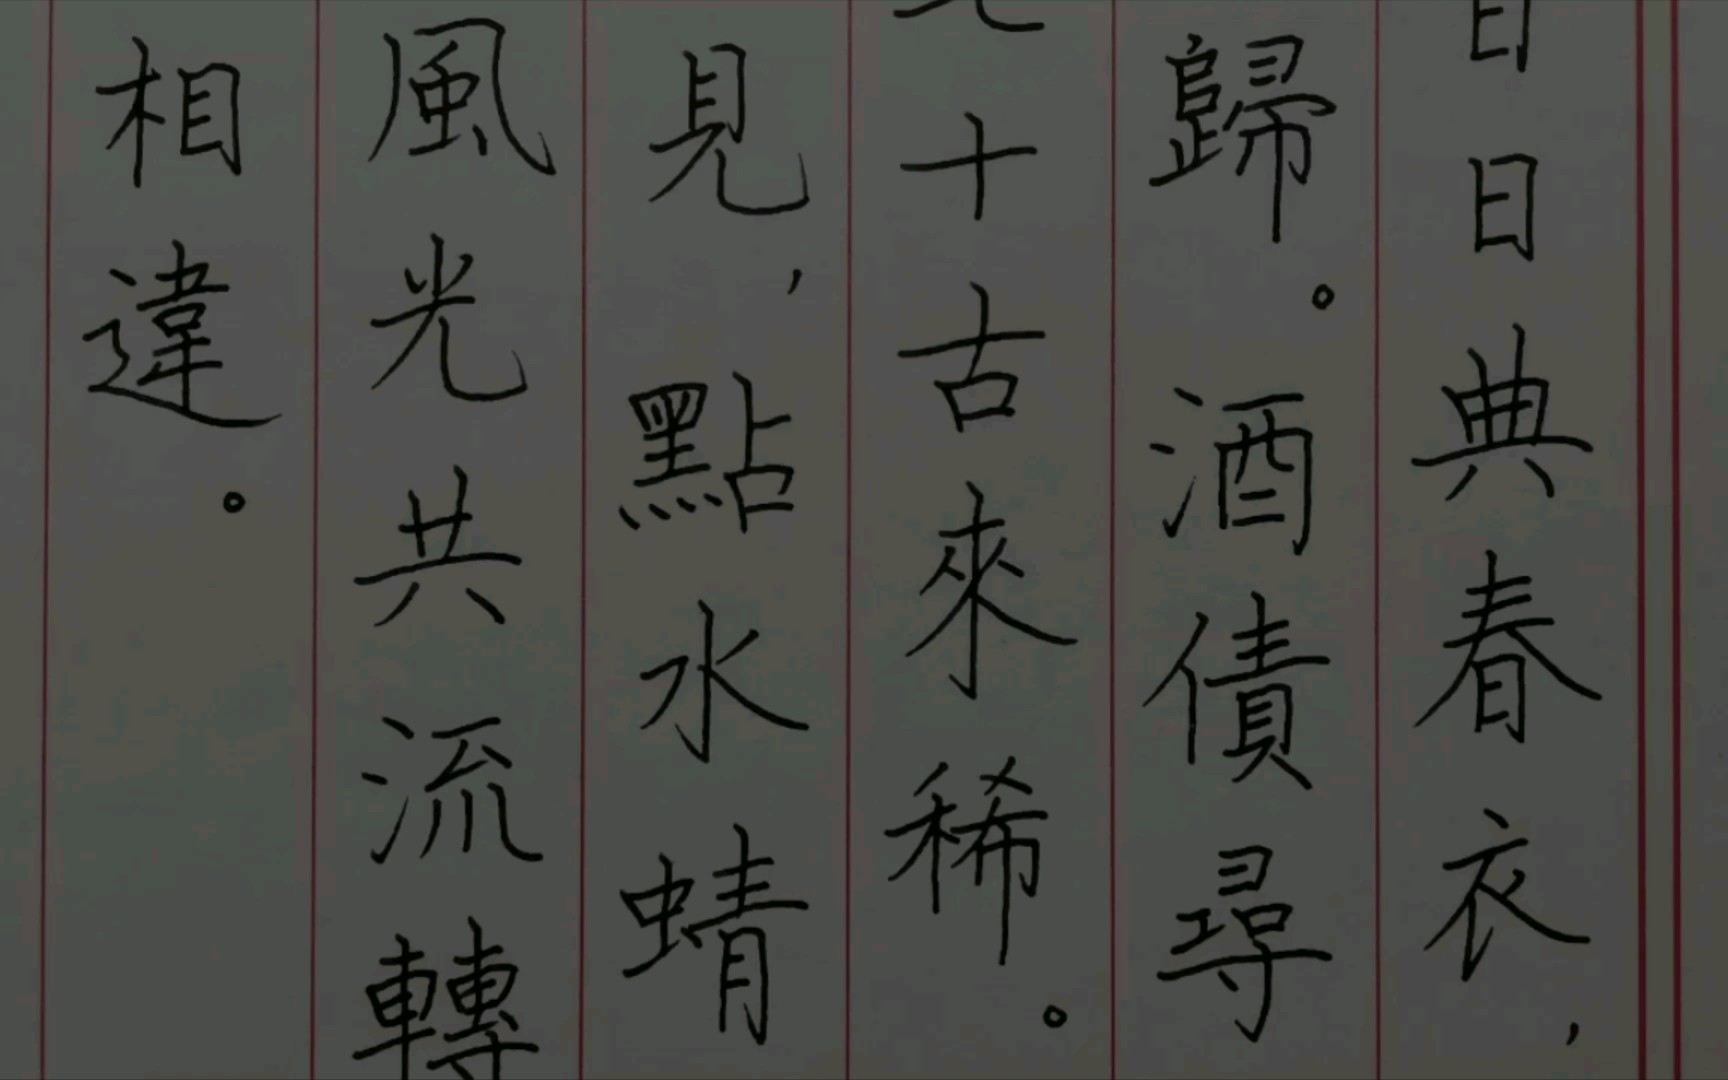 日日典春衣，
歸。酒債尋
七十古來稀。
見，點水蜻
風光共流轉
相違。